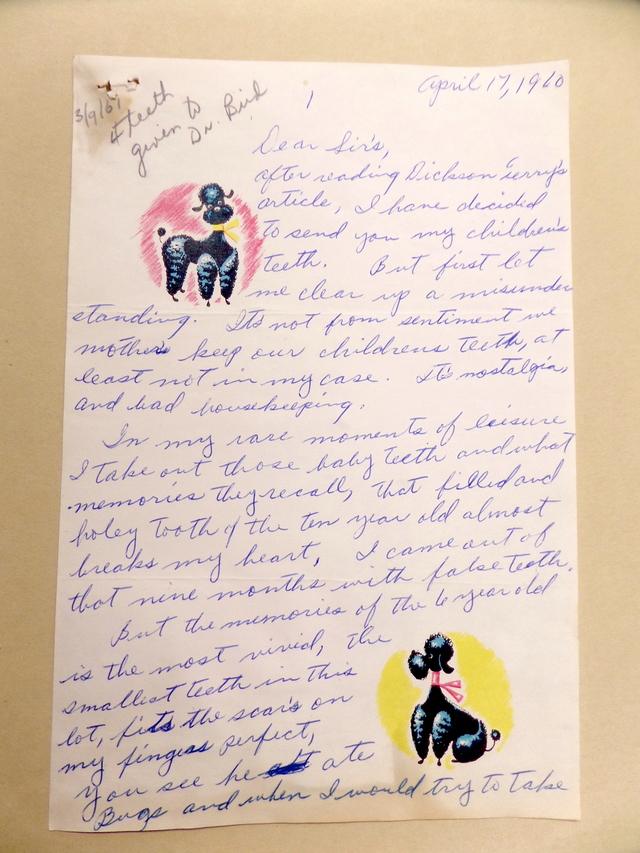 3/9/61
4 teeth
given to
Dr. Bird
1
April 17, 1960
Dear Sir's,
after reading Dickson Terry's
article, I have decided
to send you my children's
teeth. But first let
me clear up a misunder
standing. It's not from sentiment we
mothers keep our childrens teeth, at
least not in my case. It's nostalgia,
and bad housekeeping.
In my rare moments of leisure
I take out those baby teeth and what
memories they recall, that filled and
holey tooth of the ten year old almost
breaks my heart, I came out of
that nine months with false teeth.
But the memories of the 6 year old
is the most vivid, the
smallest teeth in this
lot, fits the scars on
my fingers perfect,
you see he ate
Bugs and when I would try to take